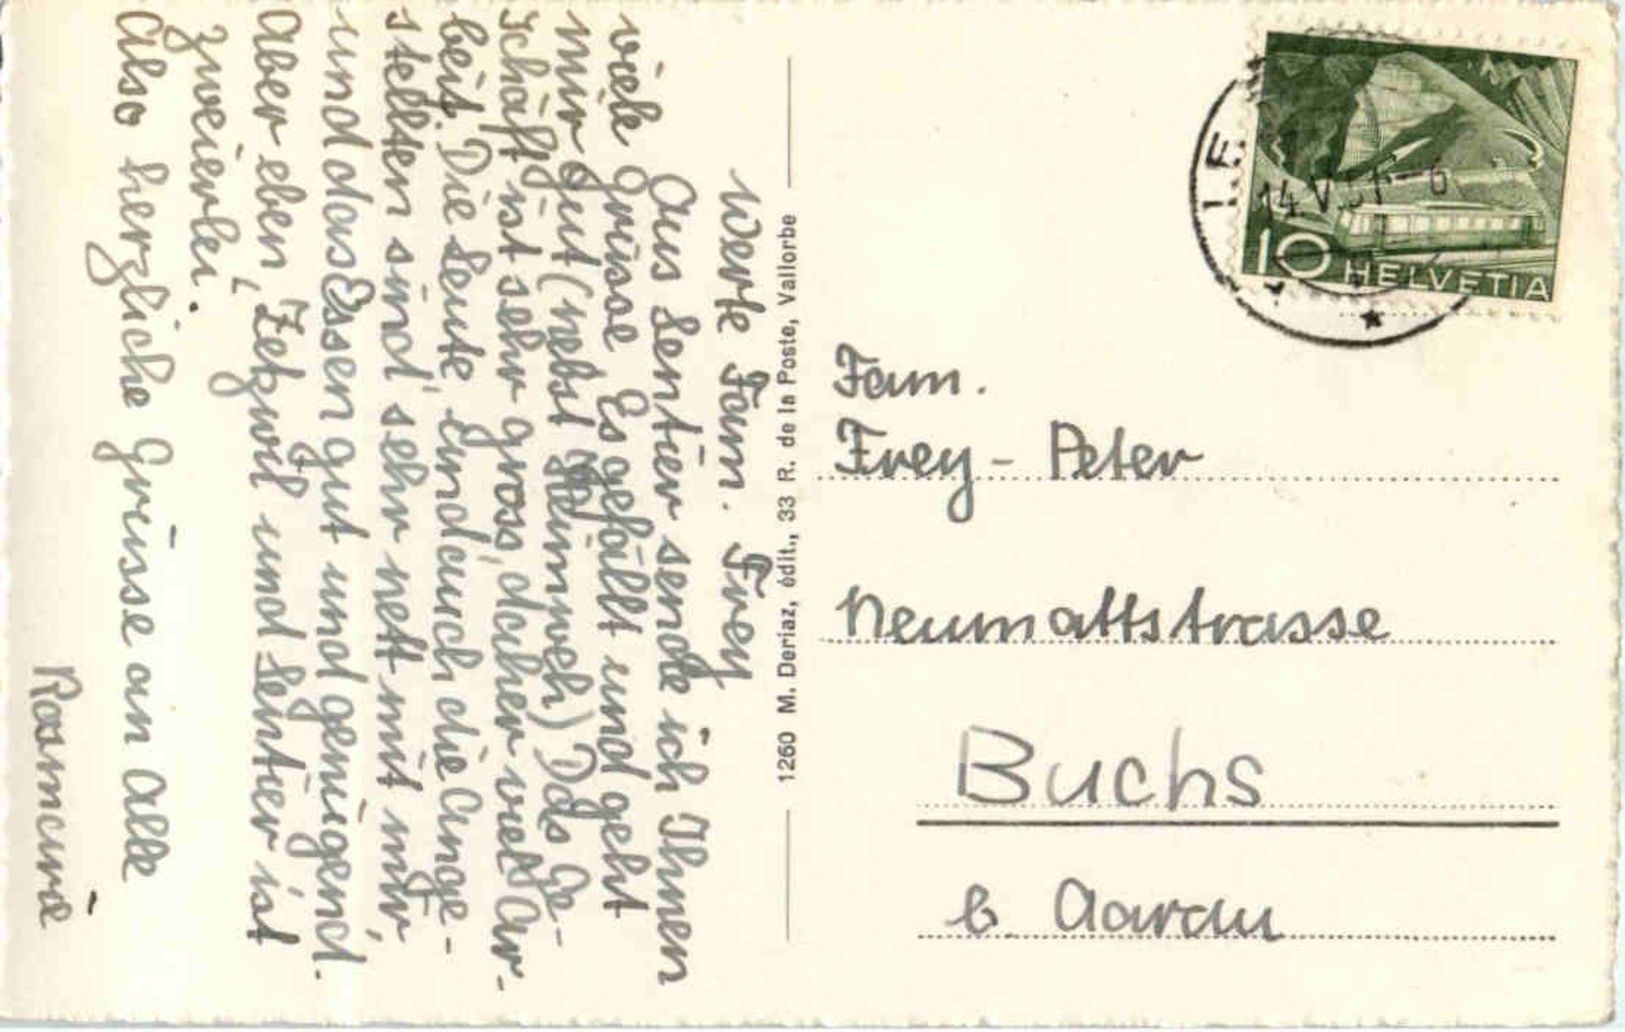 Werte Fam. Frey
Aus Sentier sende ich Ihnen
viele Grüsse. Es gefällt und geht
mir gut (nebst Heimweh) Das Ge-
schäft ist sehr gross, daher viel Ar-
beit. Die Leute, und auch die Ange-
stellten sind sehr nett mit mir,
und das Essen gut und genügend.
Aber eben, Zetzwil und Sentier ist
zweierlei.
Also herzliche Grüsse an Alle
Rosmarie
1260 M. Deriaz, édit., 33 R. de la Poste, Vallorbe
LE
14.V.51-6
10 HELVETIA
Fam.
Frey - Peter
Neumattstrasse
Buchs
b. Aarau